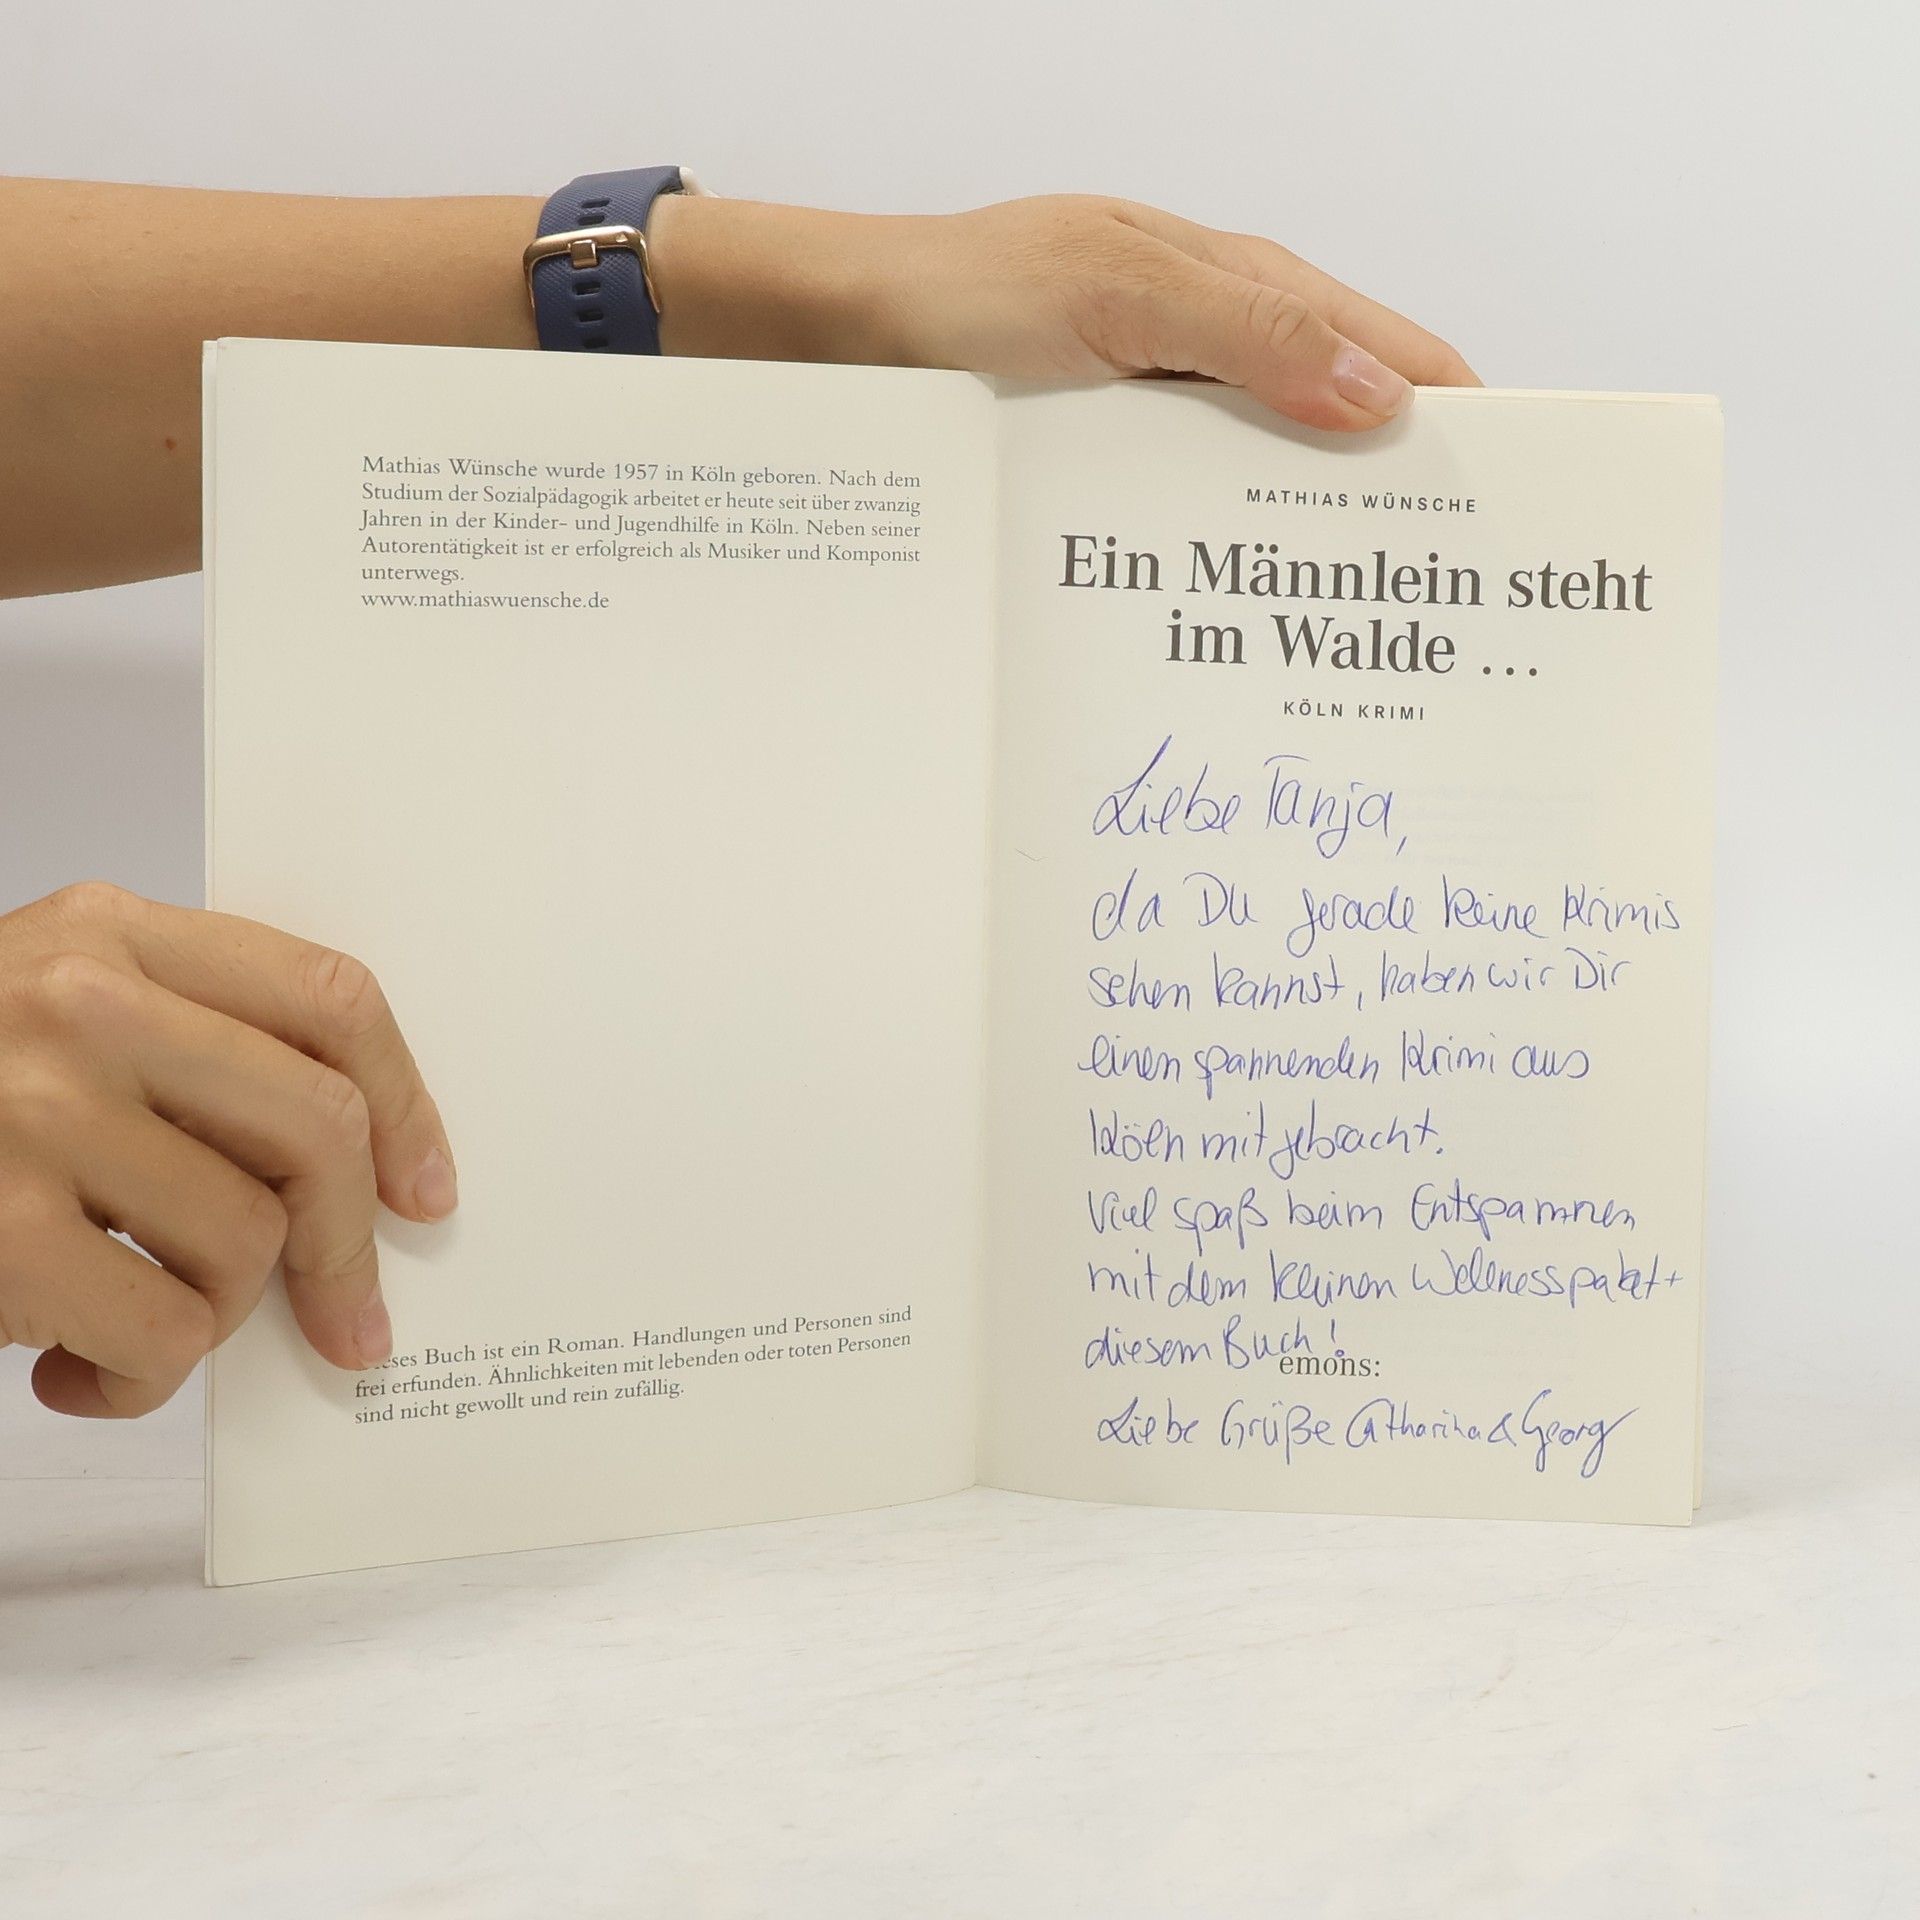 Mathias Wünsche wurde 1957 in Köln geboren. Nach dem
Studium der Sozialpädagogik arbeitet er heute seit über zwanzig
Jahren in der Kinder- und Jugendhilfe in Köln. Neben seiner
Autorentätigkeit ist er erfolgreich als Musiker und Komponist
unterwegs.
www.mathiaswuensche.de
Buch ist ein Roman. Handlungen und Personen sind
frei erfunden. Ähnlichkeiten mit lebenden oder toten Personen
sind nicht gewollt und rein zufällig.
MATHIAS WÜNSCHE
Ein Männlein steht
im Walde ...
KÖLN KRIMI
Liebe Tanja,
da Du gerade keine Krimis
sehen kannst, haben wir Dir
einen spannenden Krimi aus
Köln mitgebracht.
Viel spaß beim Entspannen
mit dem kleinen Wellnesspaket +
diesem Buch!
emons:
Liebe Grüße Catharina & Georg